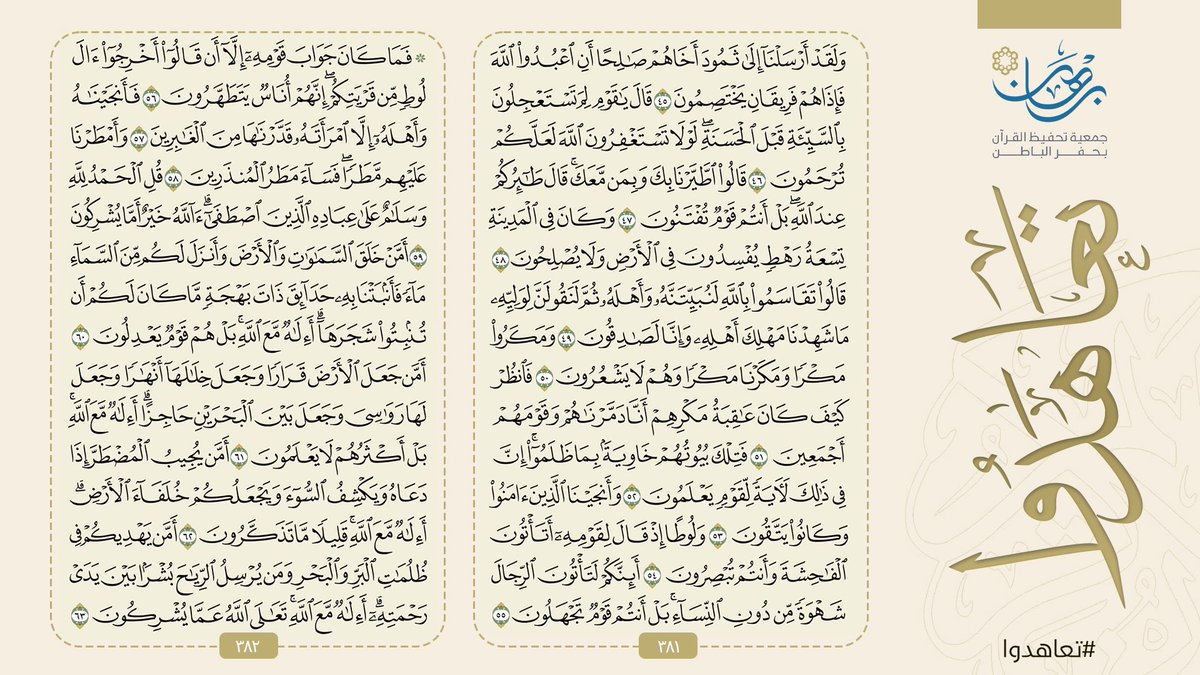 وَلَقَدْ أَرْسَلْنَآ إِلَىٰ ثَمُودَ أَخَاهُمْ صَٰلِحًا أَنِ ٱعْبُدُوا۟ ٱللَّهَ
فَإِذَا هُمْ فَرِيقَانِ يَخْتَصِمُونَ ٤٥ قَالَ يَٰقَوْمِ لِمَ تَسْتَعْجِلُونَ
بِٱلسَّيِّئَةِ قَبْلَ ٱلْحَسَنَةِ ۖ لَوْلَا تَسْتَغْفِرُونَ ٱللَّهَ لَعَلَّكُمْ
تُرْحَمُونَ ٤٦ قَالُوا۟ ٱطَّيَّرْنَا بِكَ وَبِمَن مَّعَكَ ۚ قَالَ طَٰٓئِرُكُمْ
عِندَ ٱللَّهِ ۖ بَلْ أَنتُمْ قَوْمٌ تُفْتَنُونَ ٤٧ وَكَانَ فِى ٱلْمَدِينَةِ
تِسْعَةُ رَهْطٍ يُفْسِدُونَ فِى ٱلْأَرْضِ وَلَا يُصْلِحُونَ ٤٨
قَالُوا۟ تَقَاسَمُوا۟ بِٱللَّهِ لَنُبَيِّتَنَّهُۥ وَأَهْلَهُۥ ثُمَّ لَنَقُولَنَّ لِوَلِيِّهِۦ
مَا شَهِدْنَا مَهْلِكَ أَهْلِهِۦ وَإِنَّا لَصَٰدِقُونَ ٤٩ وَمَكَرُوا۟
مَكْرًا وَمَكَرْنَا مَكْرًا وَهُمْ لَا يَشْعُرُونَ ٥٠ فَٱنظُرْ
كَيْفَ كَانَ عَٰقِبَةُ مَكْرِهِمْ أَنَّا دَمَّرْنَٰهُمْ وَقَوْمَهُمْ
أَجْمَعِينَ ٥١ فَتِلْكَ بُيُوتُهُمْ خَاوِيَةًۢ بِمَا ظَلَمُوٓا۟ ۗ إِنَّ
فِى ذَٰلِكَ لَءَايَةً لِّقَوْمٍ يَعْلَمُونَ ٥٢ وَأَنجَيْنَا ٱلَّذِينَ ءَامَنُوا۟
وَكَانُوا۟ يَتَّقُونَ ٥٣ وَلُوطًا إِذْ قَالَ لِقَوْمِهِۦٓ أَتَأْتُونَ
ٱلْفَٰحِشَةَ وَأَنتُمْ تُبْصِرُونَ ٥٤ أَئِنَّكُمْ لَتَأْتُونَ ٱلرِّجَالَ
شَهْوَةً مِّن دُونِ ٱلنِّسَآءِ ۚ بَلْ أَنتُمْ قَوْمٌ تَجْهَلُونَ ٥٥
٣٨١
۞ فَمَا كَانَ جَوَابَ قَوْمِهِۦٓ إِلَّآ أَن قَالُوٓا۟ أَخْرِجُوٓا۟ ءَالَ
لُوطٍ مِّن قَرْيَتِكُمْ ۖ إِنَّهُمْ أُنَاسٌ يَتَطَهَّرُونَ ٥٦ فَأَنجَيْنَٰهُ
وَأَهْلَهُۥٓ إِلَّا ٱمْرَأَتَهُۥ قَدَّرْنَٰهَا مِنَ ٱلْغَٰبِرِينَ ٥٧ وَأَمْطَرْنَا
عَلَيْهِم مَّطَرًا ۖ فَسَآءَ مَطَرُ ٱلْمُنذَرِينَ ٥٨ قُلِ ٱلْحَمْدُ لِلَّهِ
وَسَلَٰمٌ عَلَىٰ عِبَادِهِ ٱلَّذِينَ ٱصْطَفَىٰٓ ۗ ءَآللَّهُ خَيْرٌ أَمَّا يُشْرِكُونَ
٥٩ أَمَّنْ خَلَقَ ٱلسَّمَٰوَٰتِ وَٱلْأَرْضَ وَأَنزَلَ لَكُم مِّنَ ٱلسَّمَآءِ
مَآءً فَأَنۢبَتْنَا بِهِۦ حَدَآئِقَ ذَاتَ بَهْجَةٍ مَّا كَانَ لَكُمْ أَن
تُنۢبِتُوا۟ شَجَرَهَآ ۗ أَءِلَٰهٌ مَّعَ ٱللَّهِ ۚ بَلْ هُمْ قَوْمٌ يَعْدِلُونَ ٦٠
أَمَّن جَعَلَ ٱلْأَرْضَ قَرَارًا وَجَعَلَ خِلَٰلَهَآ أَنْهَٰرًا وَجَعَلَ
لَهَا رَوَٰسِىَ وَجَعَلَ بَيْنَ ٱلْبَحْرَيْنِ حَاجِزًا ۗ أَءِلَٰهٌ مَّعَ ٱللَّهِ ۚ
بَلْ أَكْثَرُهُمْ لَا يَعْلَمُونَ ٦١ أَمَّن يُجِيبُ ٱلْمُضْطَرَّ إِذَا
دَعَاهُ وَيَكْشِفُ ٱلسُّوٓءَ وَيَجْعَلُكُمْ خُلَفَآءَ ٱلْأَرْضِ ۗ
أَءِلَٰهٌ مَّعَ ٱللَّهِ ۚ قَلِيلًا مَّا تَذَكَّرُونَ ٦٢ أَمَّن يَهْدِيكُمْ فِى
ظُلُمَٰتِ ٱلْبَرِّ وَٱلْبَحْرِ وَمَن يُرْسِلُ ٱلرِّيَٰحَ بُشْرًۢا بَيْنَ يَدَىْ
رَحْمَتِهِۦٓ ۗ أَءِلَٰهٌ مَّعَ ٱللَّهِ ۚ تَعَٰلَى ٱللَّهُ عَمَّا يُشْرِكُونَ ٦٣
٣٨٢
برهان
جمعية تحفيظ القرآن
بحفر الباطن
تعاهدوا
#تعاهدوا